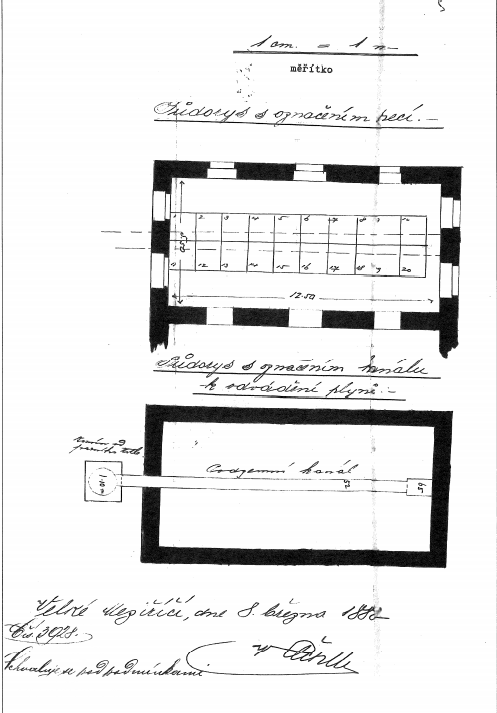 1 cm. = 1 m
měřítko
Půdorys s označením pecí.-
1 2 3 4 5 6 7 8 9 10
11 12 13 14 15 16 17 18 19 20
12.50
Půdorys s označením kanálu
k odvádění plynů.-
Komín od
Podzemní kanál
25
65
Velké Meziříčí, dne 8. března 1888
Čís. 3028.
Schvaluje se pod podmínkami